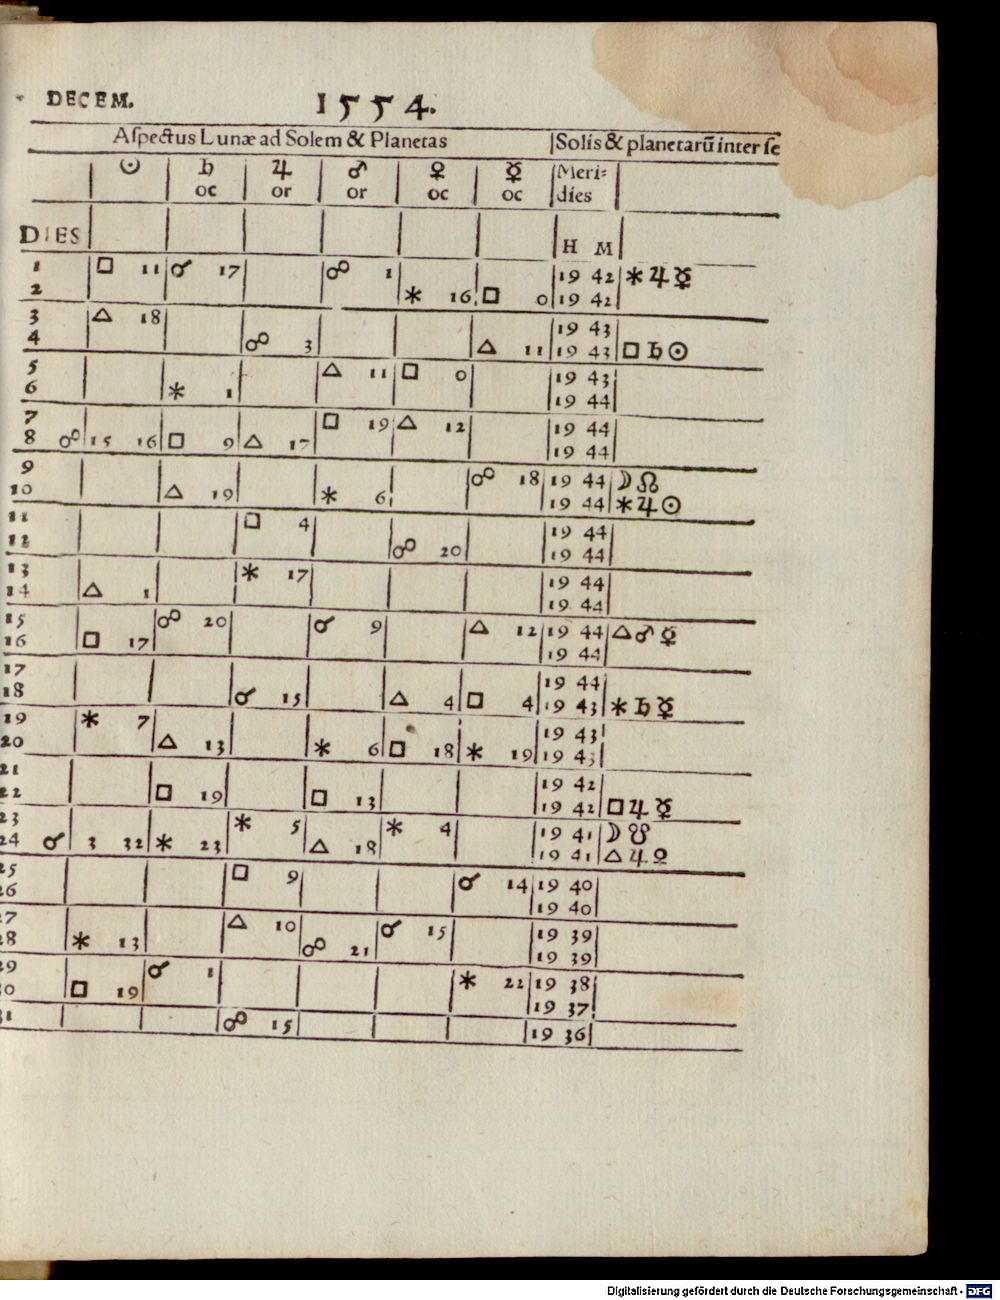 DECEM. 1554.
Aſpectus Lunæ ad Solem & Planetas Solis & planetarū inter ſe
☉ ♄ ♃ ♂ ♀ ☿ Meri=
oc or or oc oc dies
DIES H M
1 □ 11 ☌ 17 ☍ 1 19 42 ✶ ♃ ☿
2 ✶ 16 □ 0 19 42
3 △ 18 19 43
4 ☍ 3 △ 11 19 43 □ ♄ ☉
5 △ 11 □ 0 19 43
6 ✶ 1 19 44
7 □ 19 △ 12 19 44
8 ☍ 15 16 □ 9 △ 17 19 44
9 ☍ 18 19 44 ☽ ☊
10 △ 19 ✶ 6 19 44 ✶ ♃ ☉
11 □ 4 19 44
12 ☍ 20 19 44
13 ✶ 17 19 44
14 △ 1 19 44
15 ☍ 20 ☌ 9 △ 12 19 44 △ ♂ ☿
16 □ 17 19 44
17 19 44
18 ☌ 15 △ 4 □ 4 19 43 ✶ ♄ ☿
19 ✶ 7 19 43
20 △ 13 ✶ 6 □ 18 ✶ 19 19 43
21 19 42
22 □ 19 □ 13 19 42 □ ♃ ☿
23 ✶ 5 ✶ 4 19 41 ☽ ☋
24 ☌ 3 32 ✶ 23 △ 18 19 41 △ ♃ ♀
25 □ 9 ☌ 14 19 40
26 19 40
27 △ 10 ☌ 15 19 39
28 ✶ 13 ☍ 21 19 39
29 ☌ 1 ✶ 22 19 38
30 □ 19 19 37
31 ☍ 15 19 36
Digitalisierung gefördert durch die Deutsche Forschungsgemeinschaft - DFG